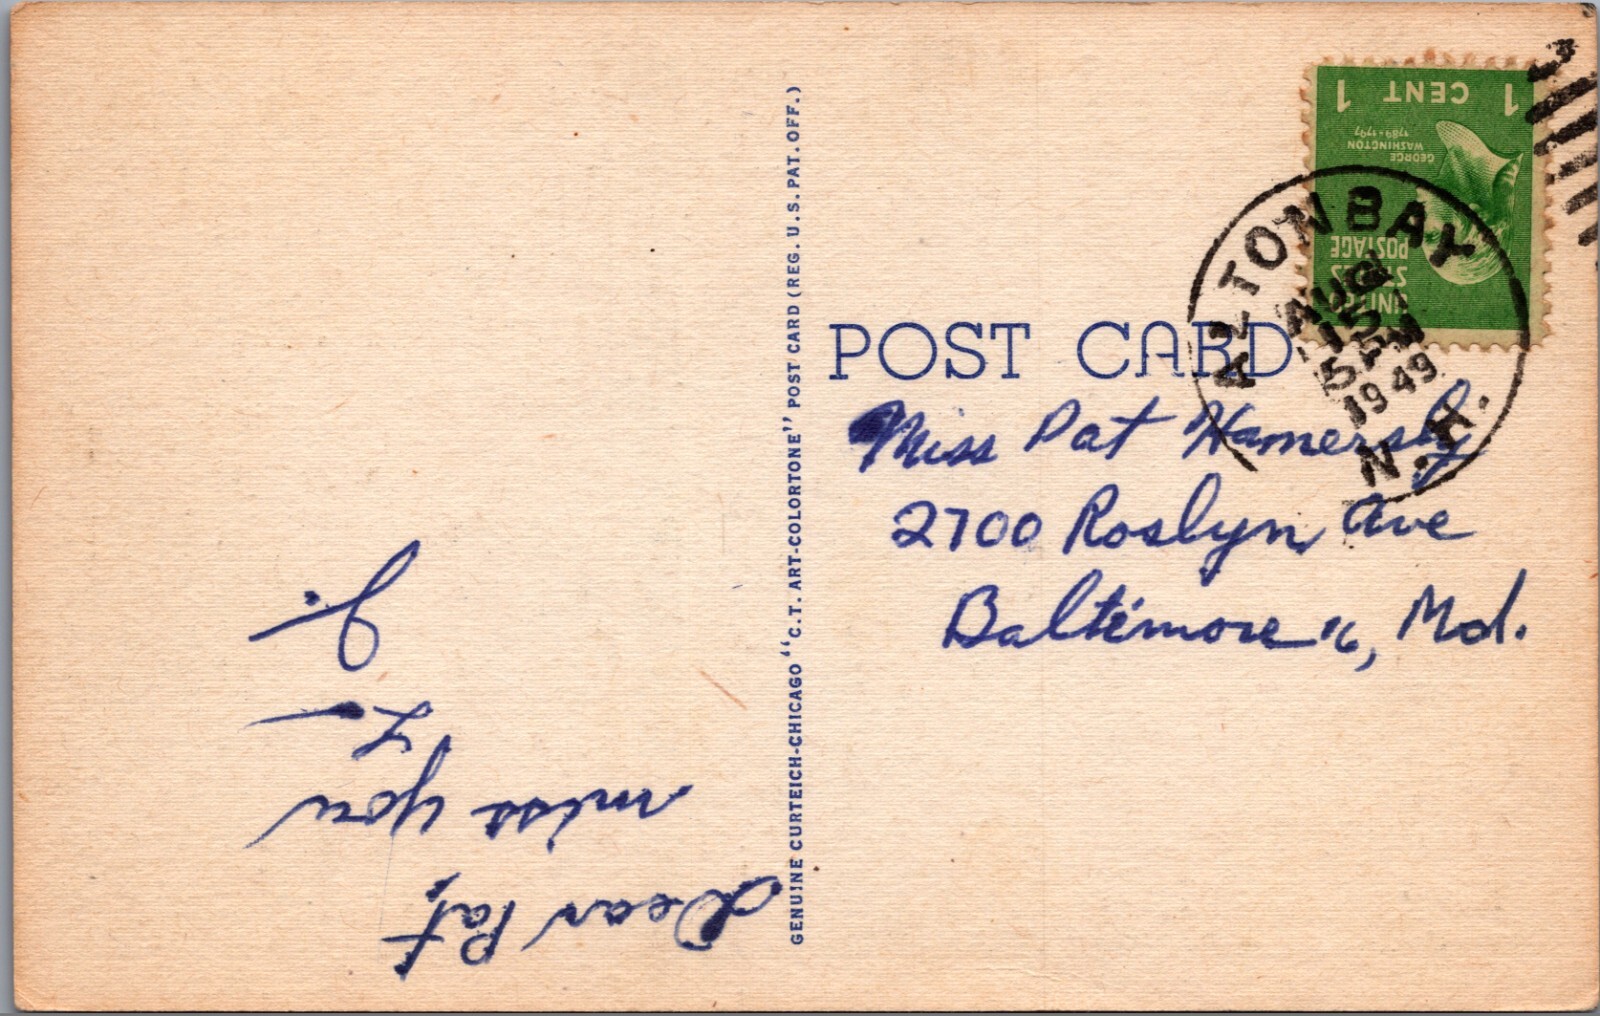 Dear Pat,
miss you
L—
J.
GENUINE CURTEICH-CHICAGO "C.T. ART-COLORTONE" POST CARD (REG. U.S. PAT. OFF.)
POST CARD
Miss Pat Hamersly
2700 Roslyn Ave
Baltimore 16, Md.
ALTON BAY
AUG
15
1949
N.H.
1 CENT 1
GEORGE
WASHINGTON
1789-1797
UNITED
STATES
POSTAGE